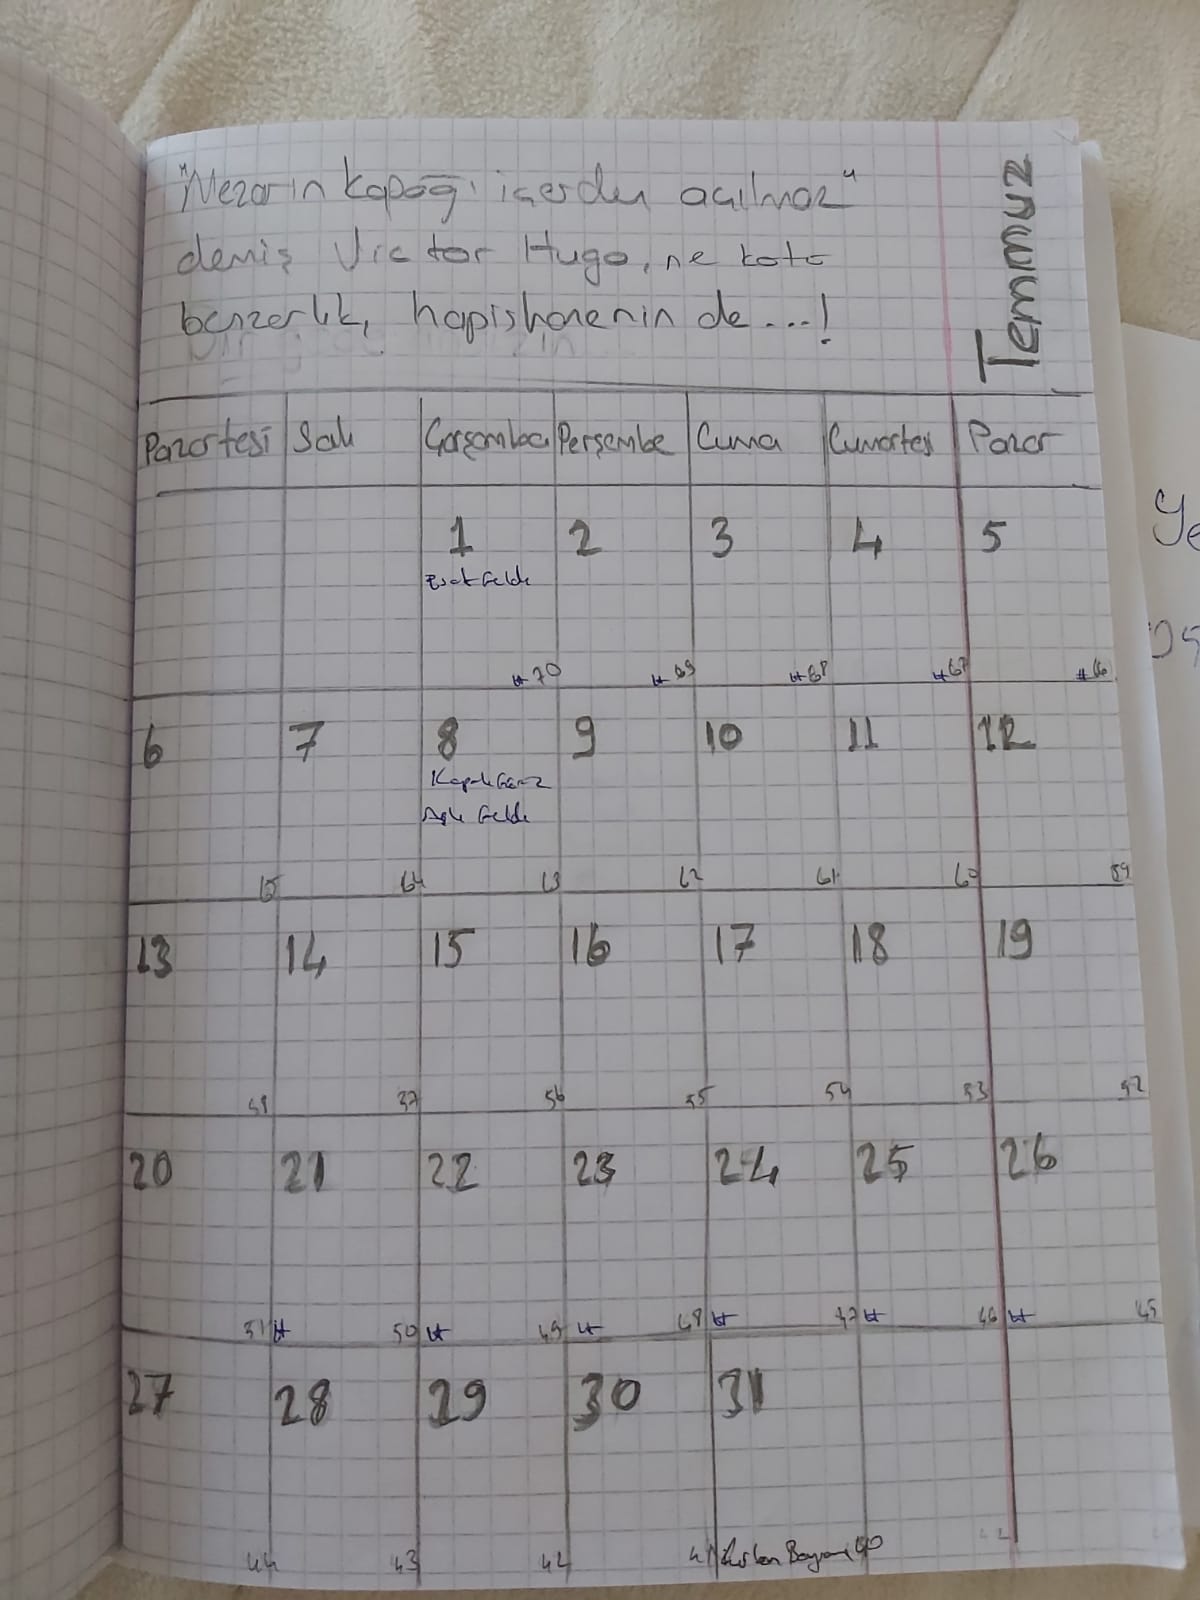 "Mezarın kapağı içerden açılmaz"
demiş Victor Hugo, ne kötü
benzerlik, hapishanenin de...!
Temmuz
Pazartesi Salı Çarşamba Perşembe Cuma Cumartesi Pazar
1 2 3 4 5
Esat Geldi
70 69 68 67 66
6 7 8 9 10 11 12
Kapalı Görüş
Geldi
65 64 63 62 61 60 59
13 14 15 16 17 18 19
57 56 55 54 53 52
20 21 22 23 24 25 26
51 50 49 48 47 46 45
27 28 29 30 31
44 43 42 41 Kurban Bayramı 40